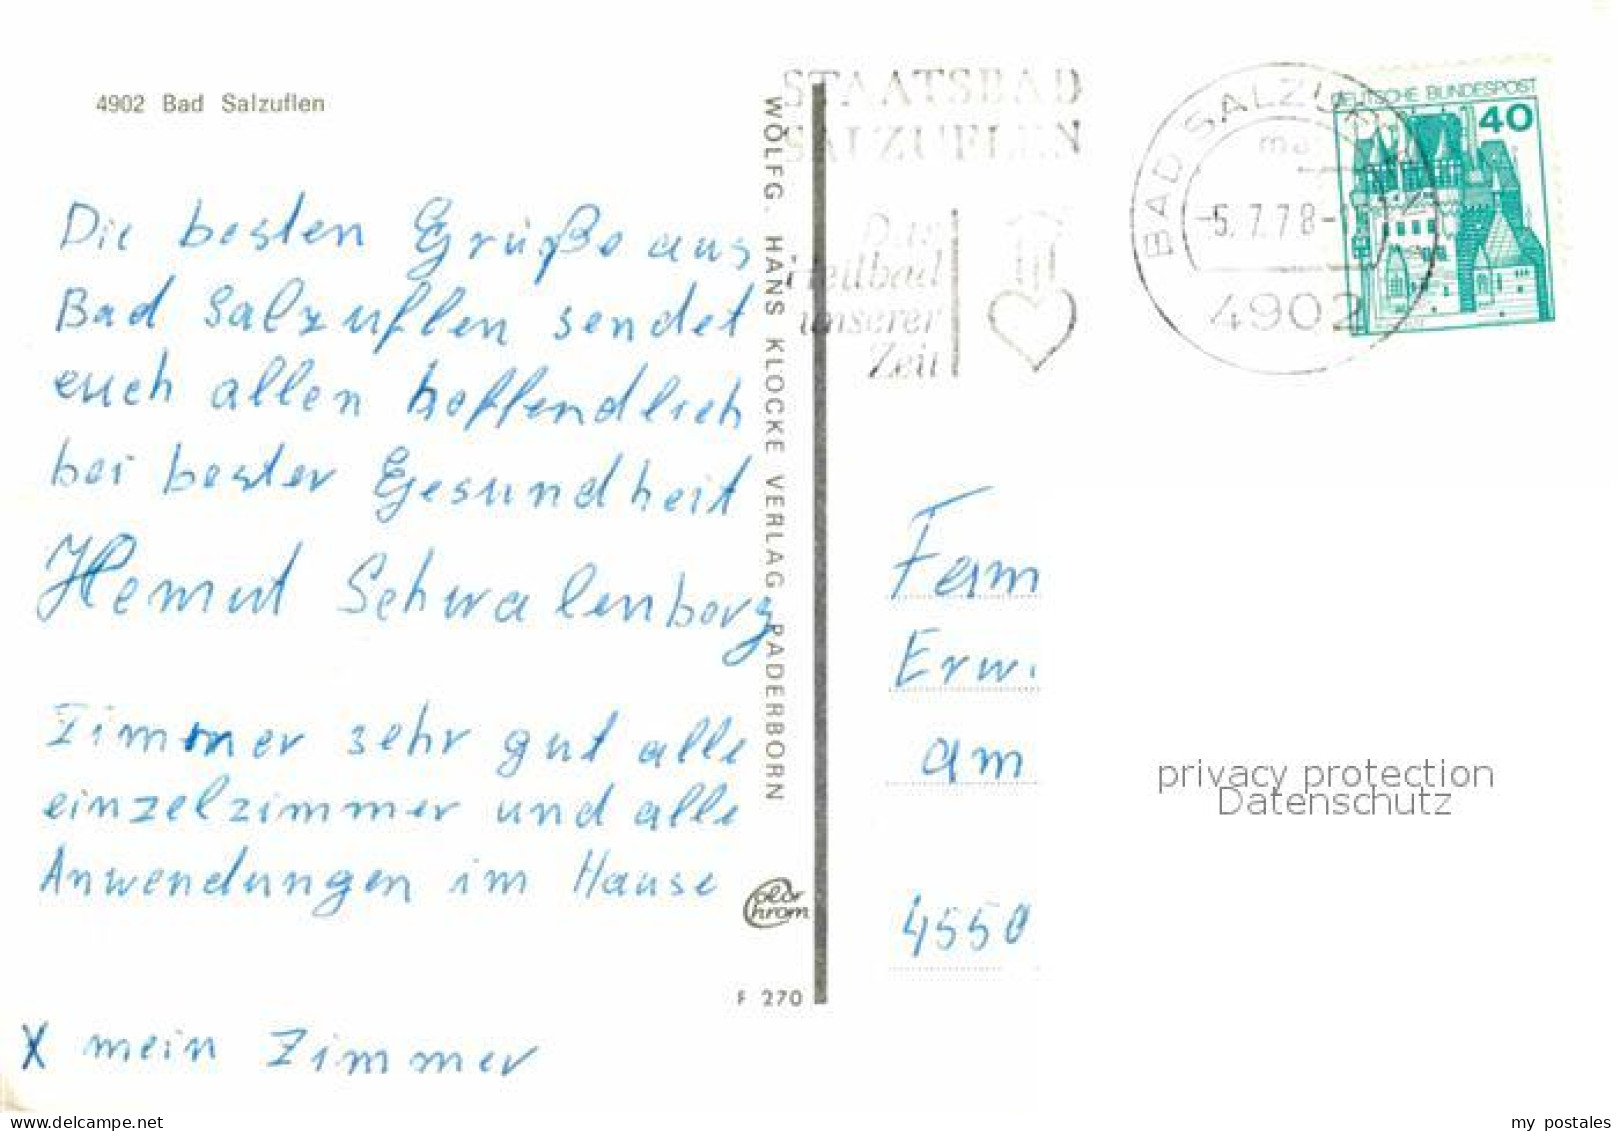 4902 Bad Salzuflen
Die besten Grüße aus
Bad Salzuflen sendet
euch allen hoffendlich
bei bester Gesundheit
Hemut Schwalenborg
Zimmer sehr gut alle
einzelzimmer und alle
Anwendungen im Hause
X mein Zimmer
WOLFG. HANS KLOCKE VERLAG PADERBORN
Color
Chrom
F 270
STAATSBAD
SALZUFLEN
Das
Heilbad
unserer
Zeit
BAD SALZUFLEN
-5.7.78-
4902
DEUTSCHE BUNDESPOST
40
Fam
Erw.
am
4550
privacy protection
Datenschutz
delcampe.net
my postales